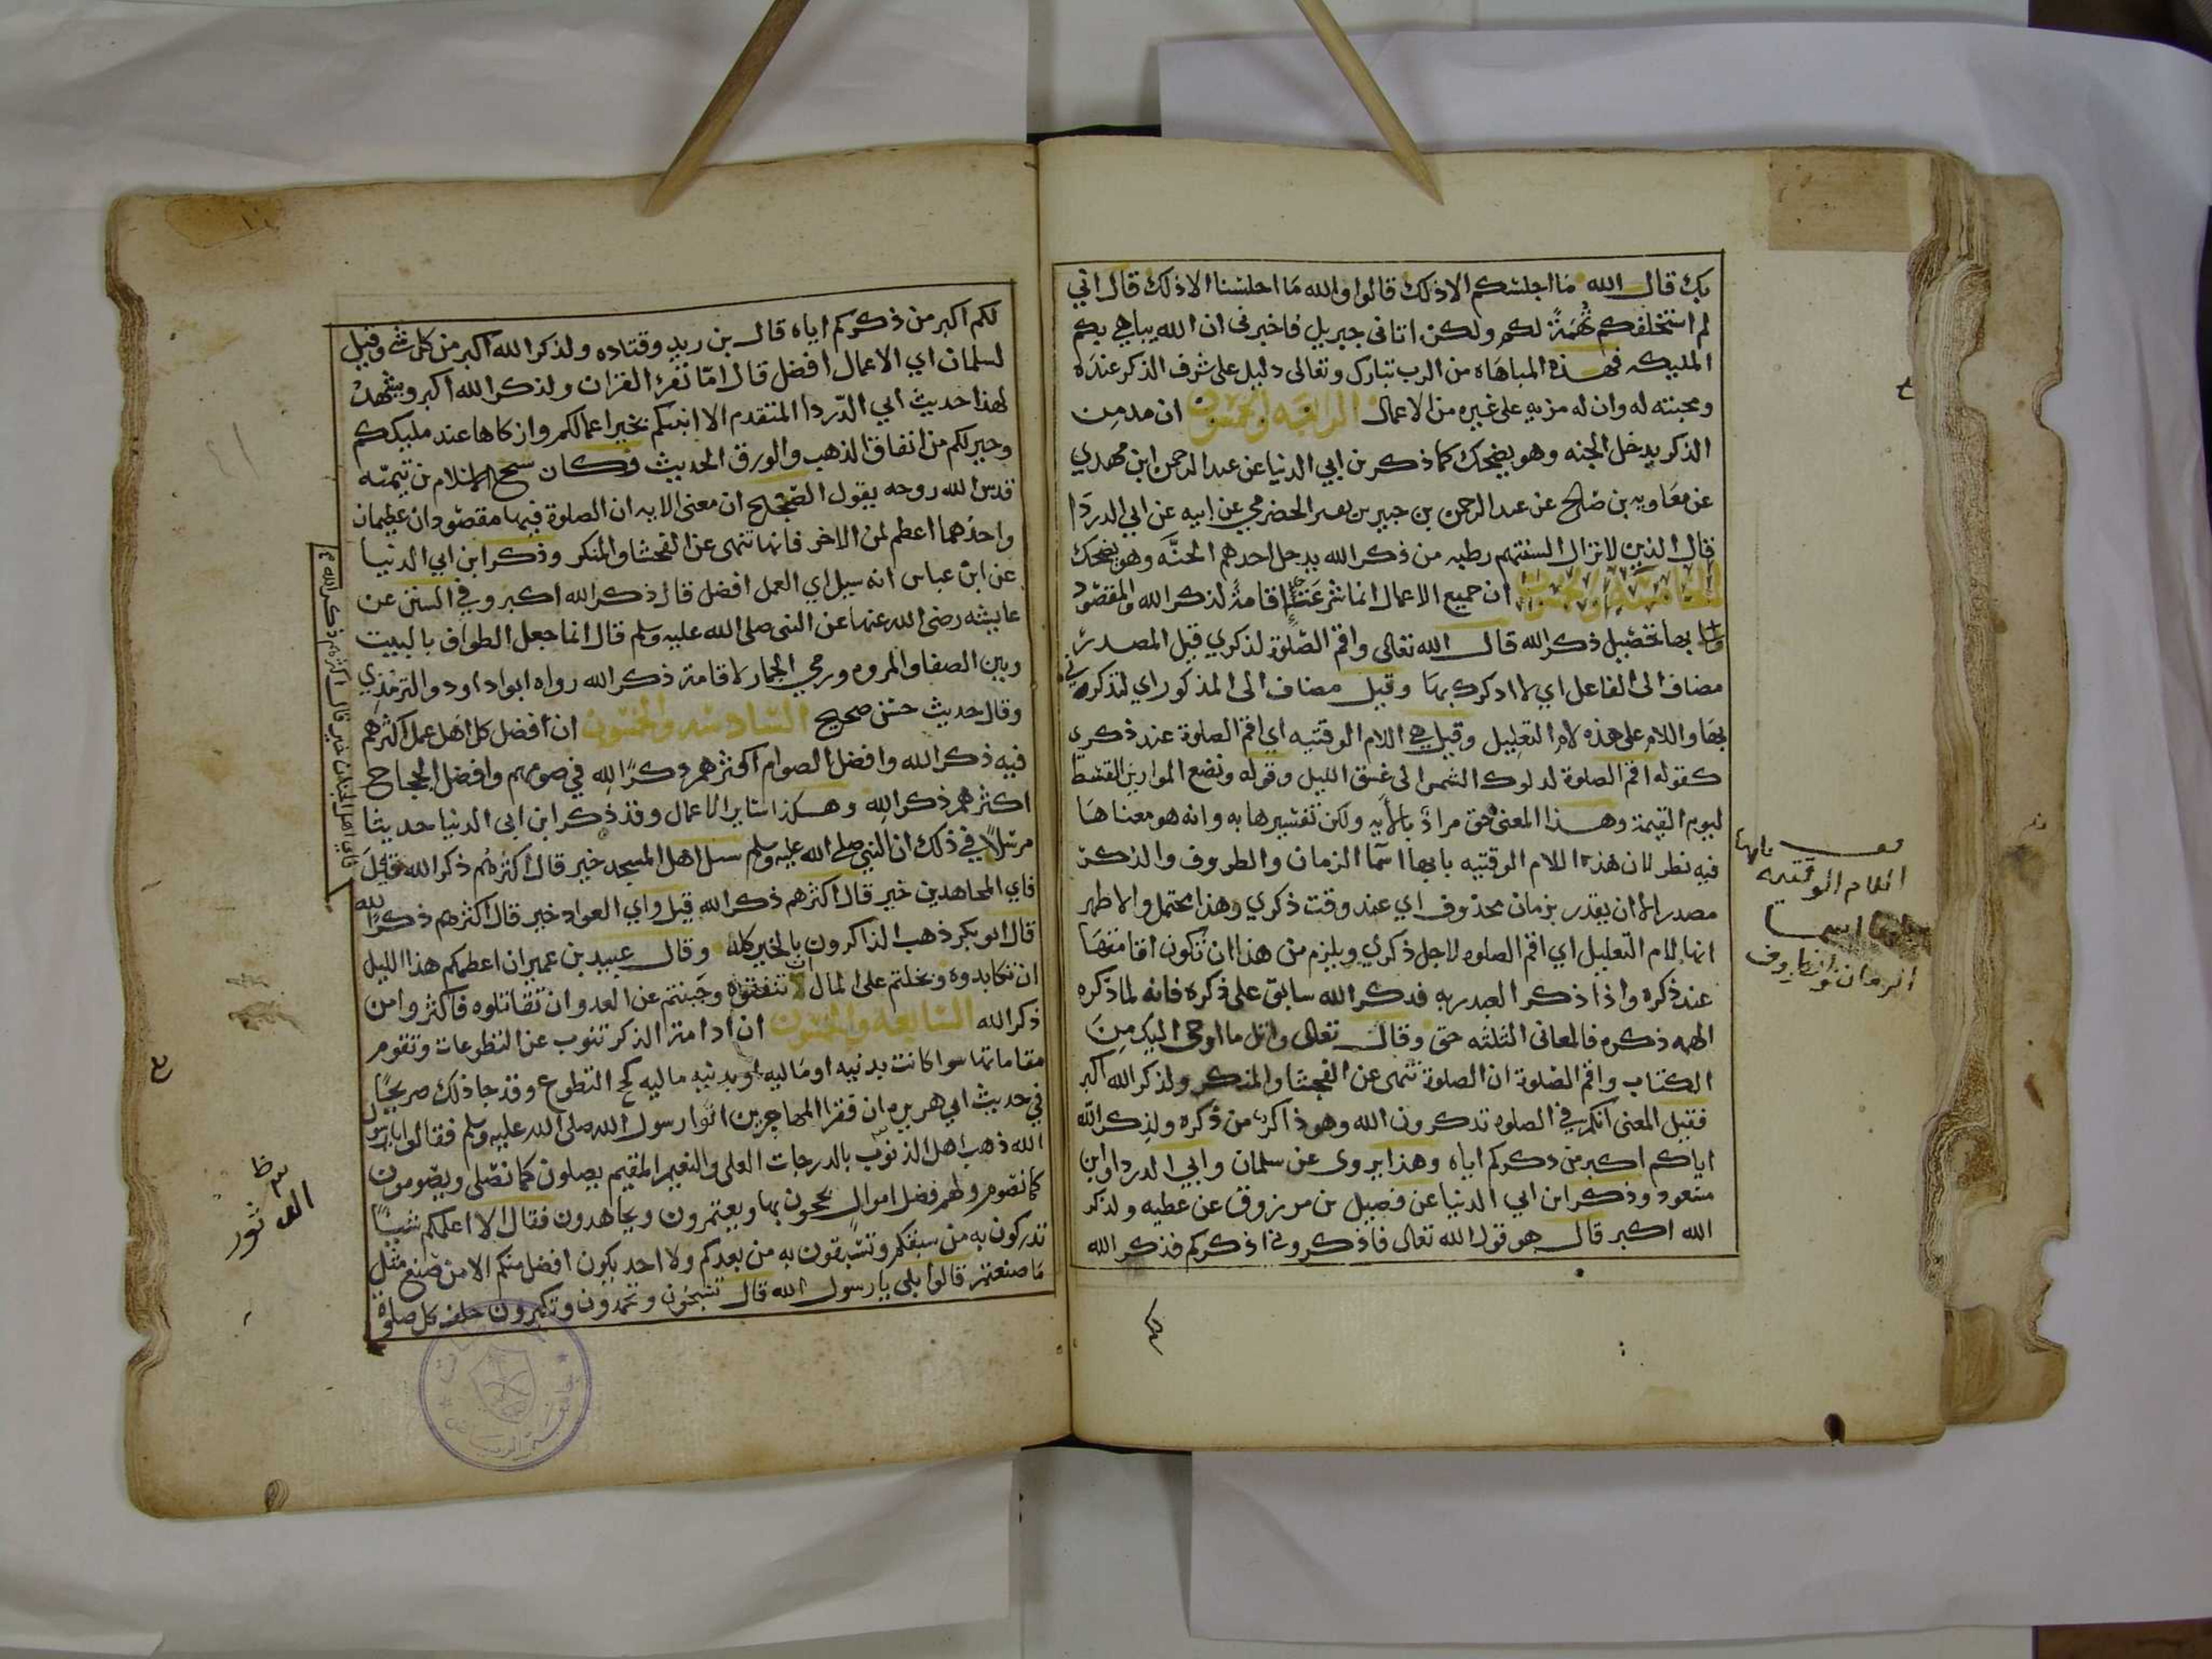 بك قال الله ما اجلسكم الا ذلك قالوا والله ما اجلسنا الا ذلك قال اني
لم استخلفكم تُهمَةً لكم ولكن اتاني جبريل فاخبرني ان الله يباهي بكم
المليكه فهذه المباهاه من الرب تبارك وتعالى دليل على شرف الذكر عنده
ومحبته له وان له مزيه على غيره من الاعمال الرابعه والخمسون ان مدمن
الذكر يدخل الجنه وهو يضحك كما ذكر بن ابي الدنيا عن عبد الرحمن ابن مهدي
عن معاويه بن صالح عن عبد الرحمن بن جبير بن نفير الحضرمي عن ابيه عن ابي الدردا
قال الذين لا تزال السنتهم رطبه من ذكر الله يدخل احدهم الجنَّه وهو يضحك
الخامسه والخمسون ان جميع الاعمال انما شرعَت اقامةً لذكر الله والمقصود
بها تحصيل ذكر الله قال الله تعالى واقم الصّلوة لذكري قيل المصدر
مضاف الى الفاعل اي لاذكرك بها وقيل مضاف الى المذكور اي لتذكروني
بها واللام على هذه لام التعليل وقيل هي اللام الوقتيه اي اقم الصلوة عند ذكري
كقوله اقم الصلوة لدلوك الشمس الى غسق الليل وقوله ونضع الموازين القسط
ليوم القيمة وهذا المعنى حق مرادٌ بالأيه ولكن تفسيرها به وانه هو معناها
فيه نظر لان هذه اللام الوقتيه بابها اسما الزمان والظروف والذكر
مصدر الا ان يقدر بزمان محذوف اي عند وقت ذكري وهذا محتمل والاظهر
انها لام التعليل اي اقم الصلوه لاجل ذكري ويلزم من هذا ان تكون اقامتها
عند ذكره واذا ذكر العبد ربه فذكر الله سابق على ذكره فانه لما ذكره
الهمه ذكره فالمعاني الثلثه حق وقال تعالى واتل ما اوحي اليك مِنَ
الكتاب واقم الصلوة ان الصلوة تنهى عن الفحشا والمنكر ولذكر الله اكبر
فقيل المعنى انكم في الصلوه تذكرون الله وهو ذاكر من ذكره ولذكر الله
اياكم اكبر من ذكركم اياه وهذا يروى عن سلمان وابي الدردا وابن
مسعود وذكر ابن ابي الدنيا عن فضيل بن مرزوق عن عطيه ولذكر
الله اكبر قال هو قول الله تعالى فاذكروني اذكركم فذكر الله
اللام الوقتيه
الزمان والظروف
لكم اكبر من ذكركم اياه قال بن زيد وقتاده ولذكر الله اكبر من كل شي وقيل
لسلمان اي الاعمال افضل قال امّا تقرء القران ولذكر الله اكبر ويشهد
لهذا حديث ابي الدّردا المتقدم الا انبئكم بخير اعمالكم وازكاها عند مليككم
وخير لكم من انفاق الذهب والورق الحديث وكان شيخ الاسلام بن تيميّه
قدس الله روحه يقول الصّحيح ان معنى الايه ان الصلوة فيها مقصودان عظيمان
واحدُهما اعظم من الاخر فانها تنهى عن الفحشا والمنكر وذكر ابن ابي الدنيا
عن ابن عباس انه سيل اي العمل افضل قال ذكر الله اكبر وفي السنن عن
عايشه رضى الله عنها عن النبى صلى الله عليه وسلم قال انما جعل الطواف بالبيت
وبين الصفا والمروه ورمي الجمار لاقامة ذكر الله رواه ابوداود والترمذي
وقال حديث حسن صحيح السادسه والخمسون ان افضل كل اهل عمل اكثرهم
فيه ذكر الله وافضل الصوام اكثرهم ذكرًا لله في صومهم وافضل الحجاج
اكثرهم ذكر الله وهكذا ساير الاعمال وقد ذكر ابن ابى الدنيا حديثا
مرسلًا في ذلك ان النبي صلى الله عليه وسلم سيل اهل المسجد خير قال اكثرهم ذكر الله قيل
فاي اهل الجنازه خير قال اكثرهم ذكر الله
فاي المجاهدين خير قال اكثرهم ذكر الله قيل واي العواد خير قال اكثرهم ذكرًا لله
قال ابو بكر ذهب الذاكرون بالخير كله وقال عبيد بن عمير ان اعظمكم هذا الليل
ان تكابدوه وبخلتم على المال ان تنفقوه وجَبنتم عن العدو ان تقاتلوه فاكثروا من
ذكر الله السابعه والخمسون ان ادامة الذكر تنوب عن التطوعات وتقوم
مقاماتها سوا كانت بدنيه او ماليه او بدنيه ماليه كحج التطوع وقد جا ذلك صريحًا
في حديث ابي هريره ان فقرا المهاجرين اتوا رسول الله صلى الله عليه وسلم فقالوا يا رسول
الله ذهب اهل الدثور بالدرجات العلى والنعيم المقيم يصلون كما نصلى ويصومون
كما نصوم ولهم فضل اموال يحجون بها ويعتمرون ويجاهدون فقال الا اعلمكم شيئًا
تدركون به من سبقكم وتسبقون به من بعدكم ولا احد يكون افضل منكم الا من صنع مثل
ما صنعتم قالوا بلى يا رسول الله قال تسبحون وتحمدون وتكبرون خلف كل صلوة
لكم